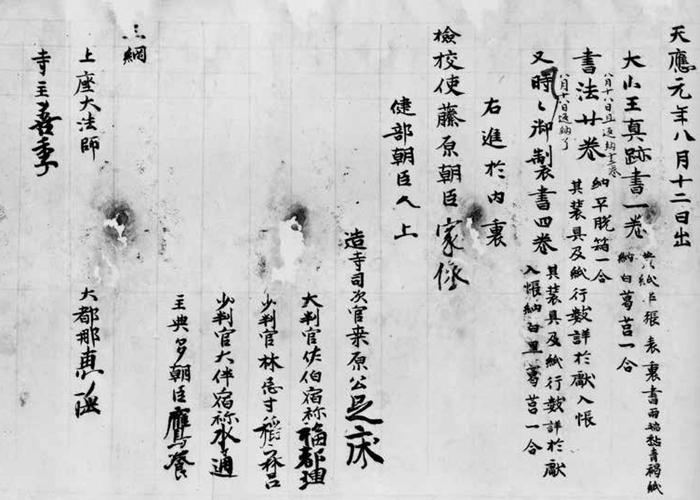 天應元年八月十二日出
大小王真跡書一卷 黃紙 張表裏書兩端黏青褐紙
納白葛筥一合
八月十八日且返納
書法廿卷 納平脫箱一合
其裝具及紙行數詳於獻入帳
八月十八日返納了
又時〻御製書四卷 其裝具及紙行數詳於獻
入帳納白黑葛筥一合
右進於內裏
檢校使藤原朝臣家依
健部朝臣人上
造寺司次官桑原公足床
大判官佐伯宿祢福都理
少判官林忌寸稻
少判官大伴宿祢水通
主典多朝臣鷹養
三綱
上座大法師 大都那惠
寺主善季